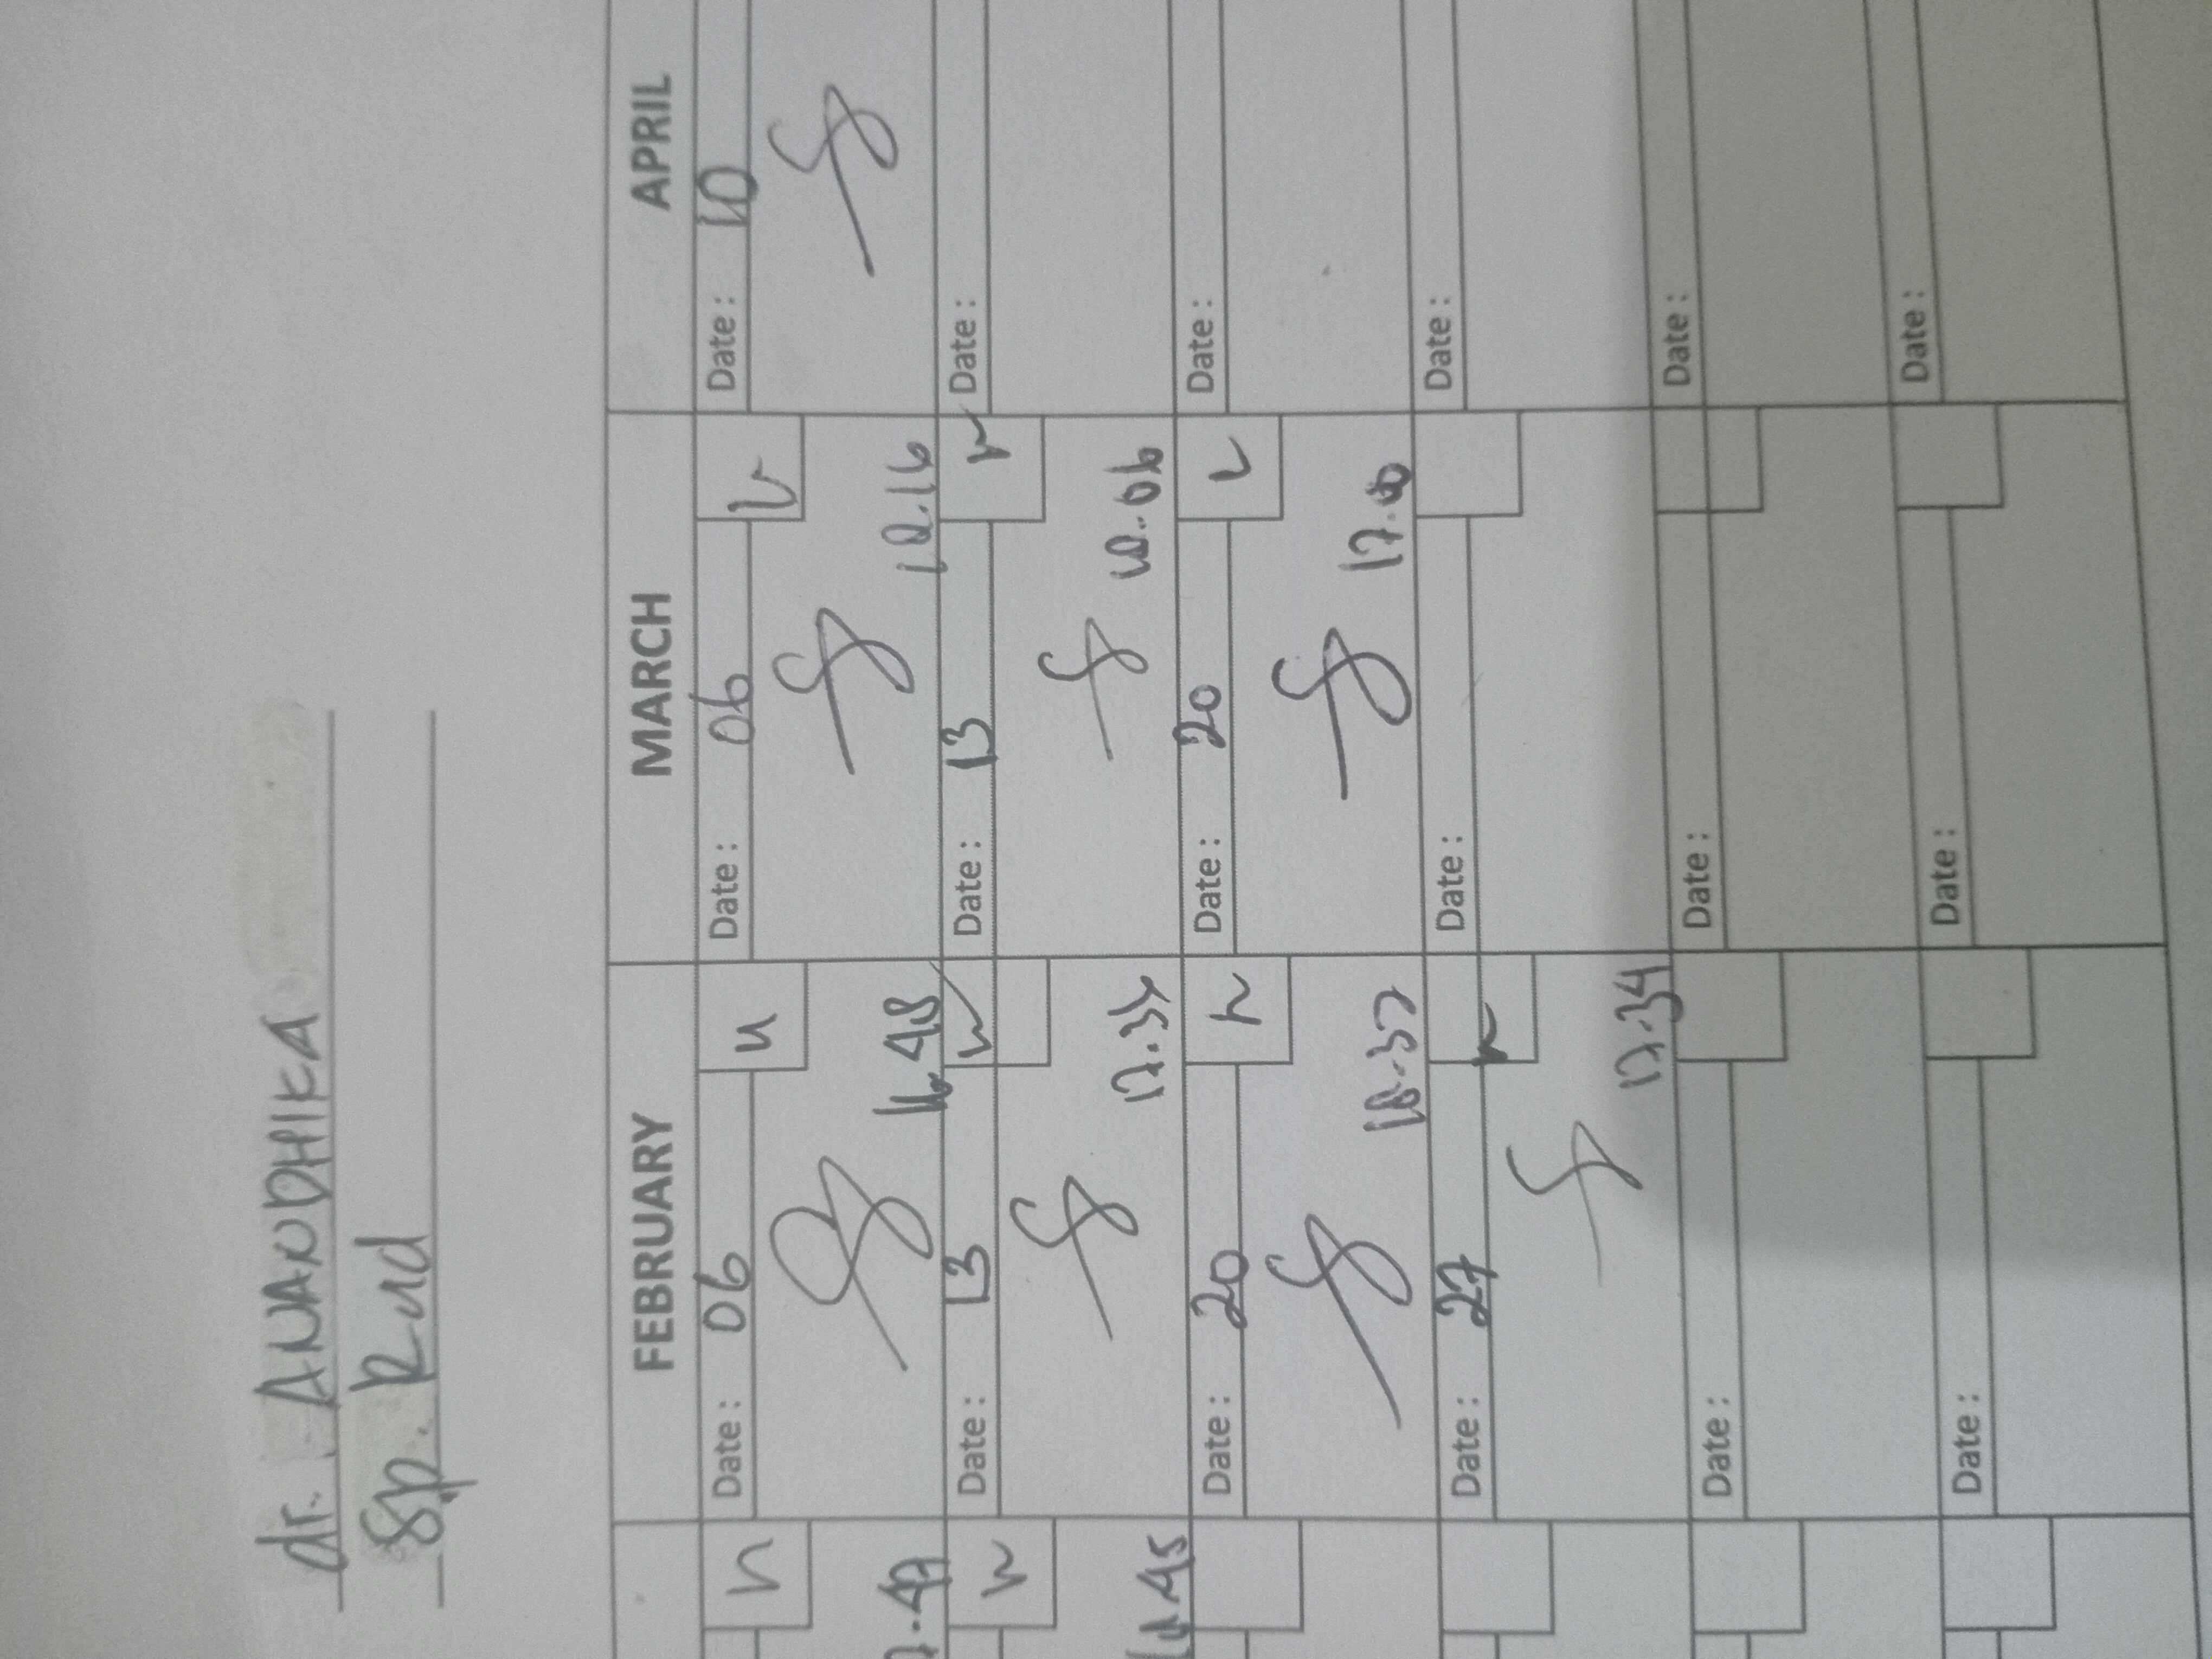 dr. ANANDHIKA
Sp. Rad
FEBRUARY MARCH APRIL
Date: 06 Date: 06 Date: 10
16.48
Date: 13 Date: 13 Date:
17.34
Date: 20 Date: 20 Date:
17.00
Date: 27 Date: Date:
17.34
Date: Date: Date:
Date: Date: Date: